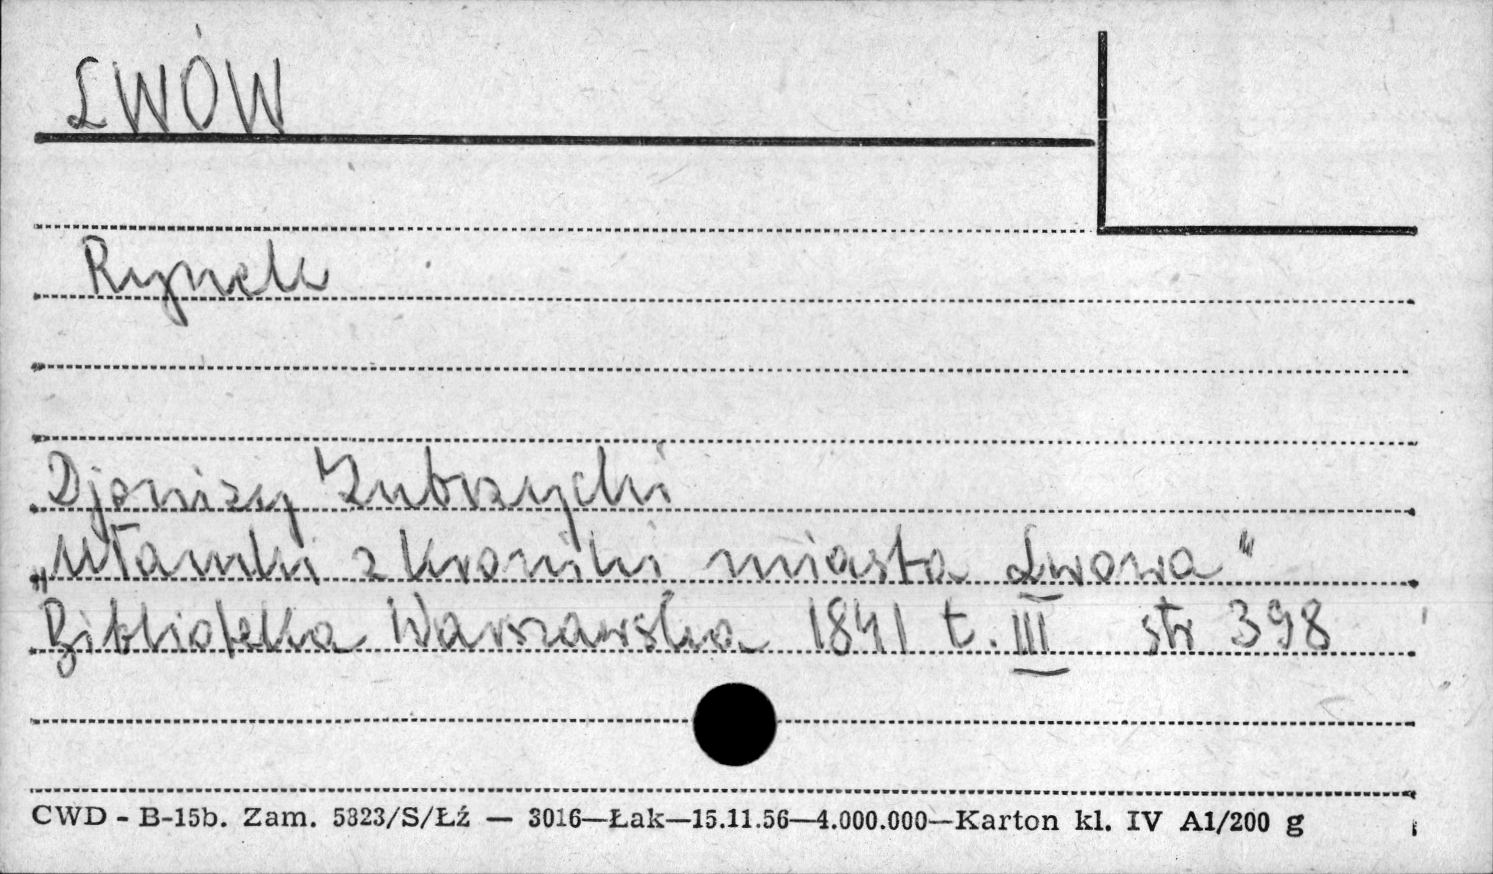 LWÓW
Rynek
Djonizy Zubrzycki
„Ułamki z kroniki miasta Lwowa"
Biblioteka Warszawska 1841 t. III str 398
CWD - B-15b. Zam. 5323/S/Łź — 3016—Łak—15.11.56—4.000.000—Karton kl. IV A1/200 g